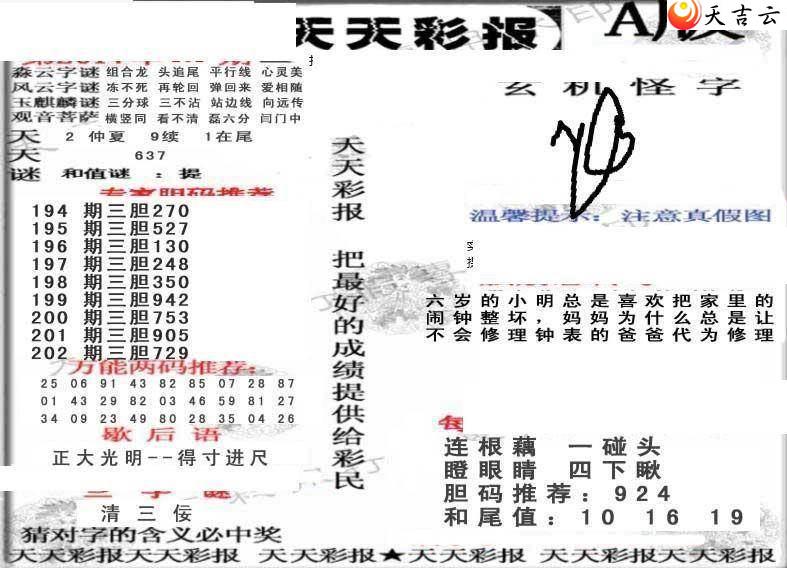 天吉云
天天彩报】
森云字谜 组合龙 头追尾 平行线 心灵美
风云字谜 冻不死 再轮回 弹回来 爱相随
玉麒麟谜 三分球 三不沾 站边线 向远传
观音菩萨 横竖同 看不清 磊六分 闫门中
天 2 仲夏 9续 1在尾
天 637
谜 和值谜 ：提
专家胆码推荐
194 期三胆270
195 期三胆527
196 期三胆130
197 期三胆248
198 期三胆350
199 期三胆942
200 期三胆753
201 期三胆905
202 期三胆729
万能两码推荐:
25 06 91 43 82 85 07 28 87
01 43 29 82 03 46 59 81 27
34 09 23 49 80 28 35 04 26
歇后语
正大光明--得寸进尺
三字谜
清三佞
猜对字的含义必中奖
天天彩报 把最好的成绩提供给彩民
玄机怪字
温馨提示：注意真假图
六岁的小明总是喜欢把家里的
闹钟整坏，妈妈为什么总是让
不会修理钟表的爸爸代为修理
连根藕 一碰头
瞪眼睛 四下瞅
胆码推荐：924
和尾值：10 16 19
天天彩报天天彩报 天天彩报★天天彩报 天天彩报天天彩报